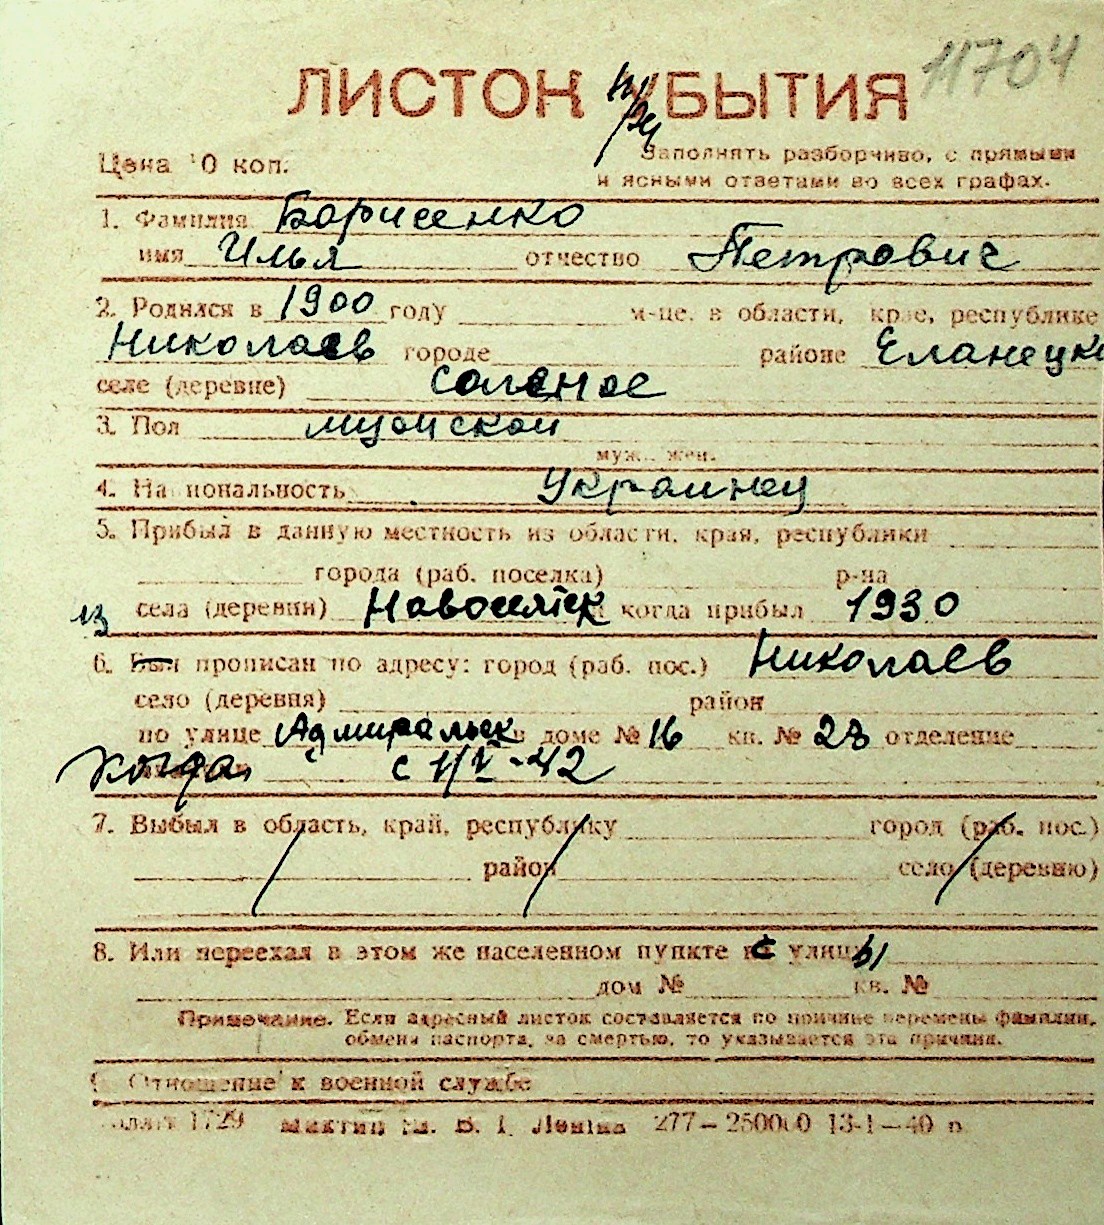 11704
ЛИСТОК УБЫТИЯ
Цена 10 коп.
Заполнять разборчиво, с прямыми
и ясными ответами во всех графах.
1. Фамилия Борисенко
имя Илья отчество Петрович
2. Родился в 1900 году м-це, в области, крае, республике
Николаев городе районе Еланецк
селе (деревне) соленое
3. Пол мужской
муж., жен.
4. Национальность Украинец
5. Прибыл в данную местность из области, края, республики
города (раб. поселка) р-на
из села (деревни) когда прибыл 1930
6. Был прописан по адресу: город (раб. пос.) Николаев
село (деревня) район
по улице Адмиральск в доме № 16 кв. № 23 отделение
Когда с 1/V-42
7. Выбыл в область, край, республику город (раб. пос.)
район село (деревню)
8. Или переехал в этом же населенном пункте с улицы
дом № кв. №
Примечание. Если адресный листок составляется по причине перемены фамилии,
обмена паспорта, за смертью, то указывается эта причина.
9. Отношение к военной службе
1729 В. І. Леніна 277—250000 13-1—40 п.